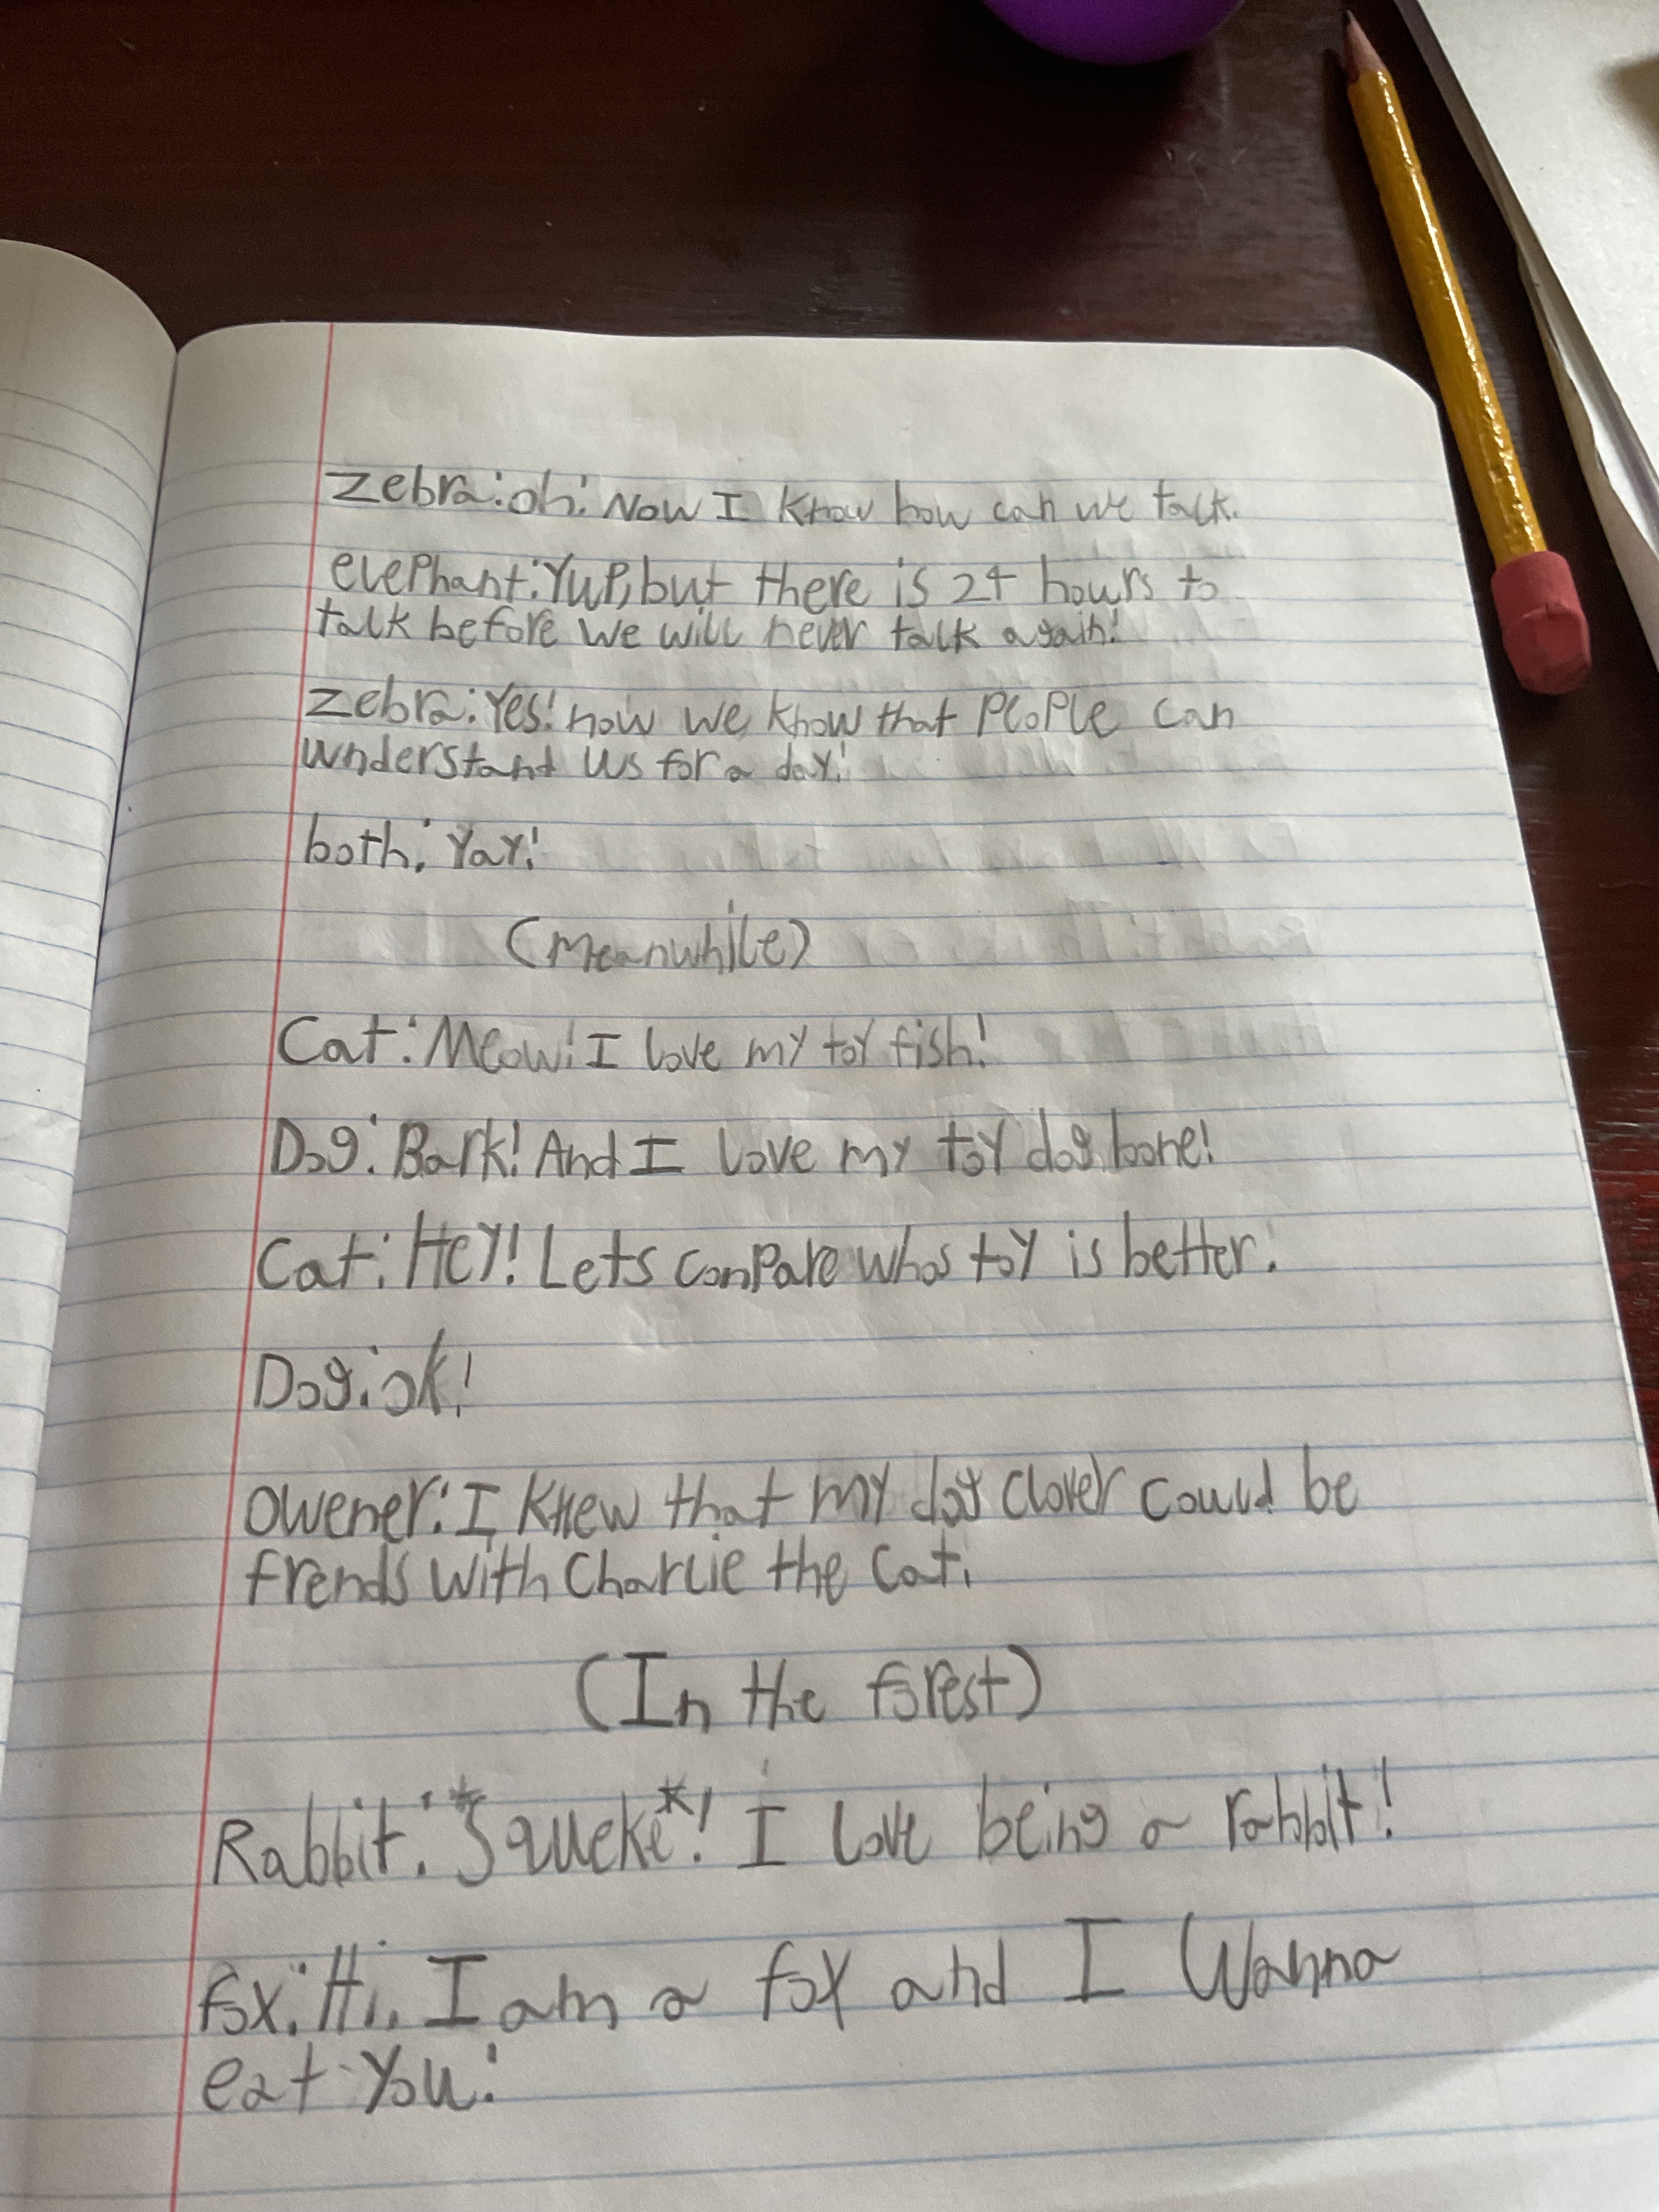 Zebra: oh! Now I know how can we talk.
elephant: Yup, but there is 24 hours to
talk before we will never talk again!
Zebra: Yes! now we know that PeoPle can
understand us for a day!
both: Yay!
(Meanwhile)
Cat: Meow! I love my toy fish!
Dog: Bark! And I love my toy dog bone!
Cat: HeY! Lets conpare whos toy is better.
Dog: ok!
Owener: I Knew that my dog clover could be
frends with Charlie the Cat.
(In the forest)
Rabbit: *Squeke*! I love being a rabbit!
fox: Hi. I am a fox and I Wanna
eat You!